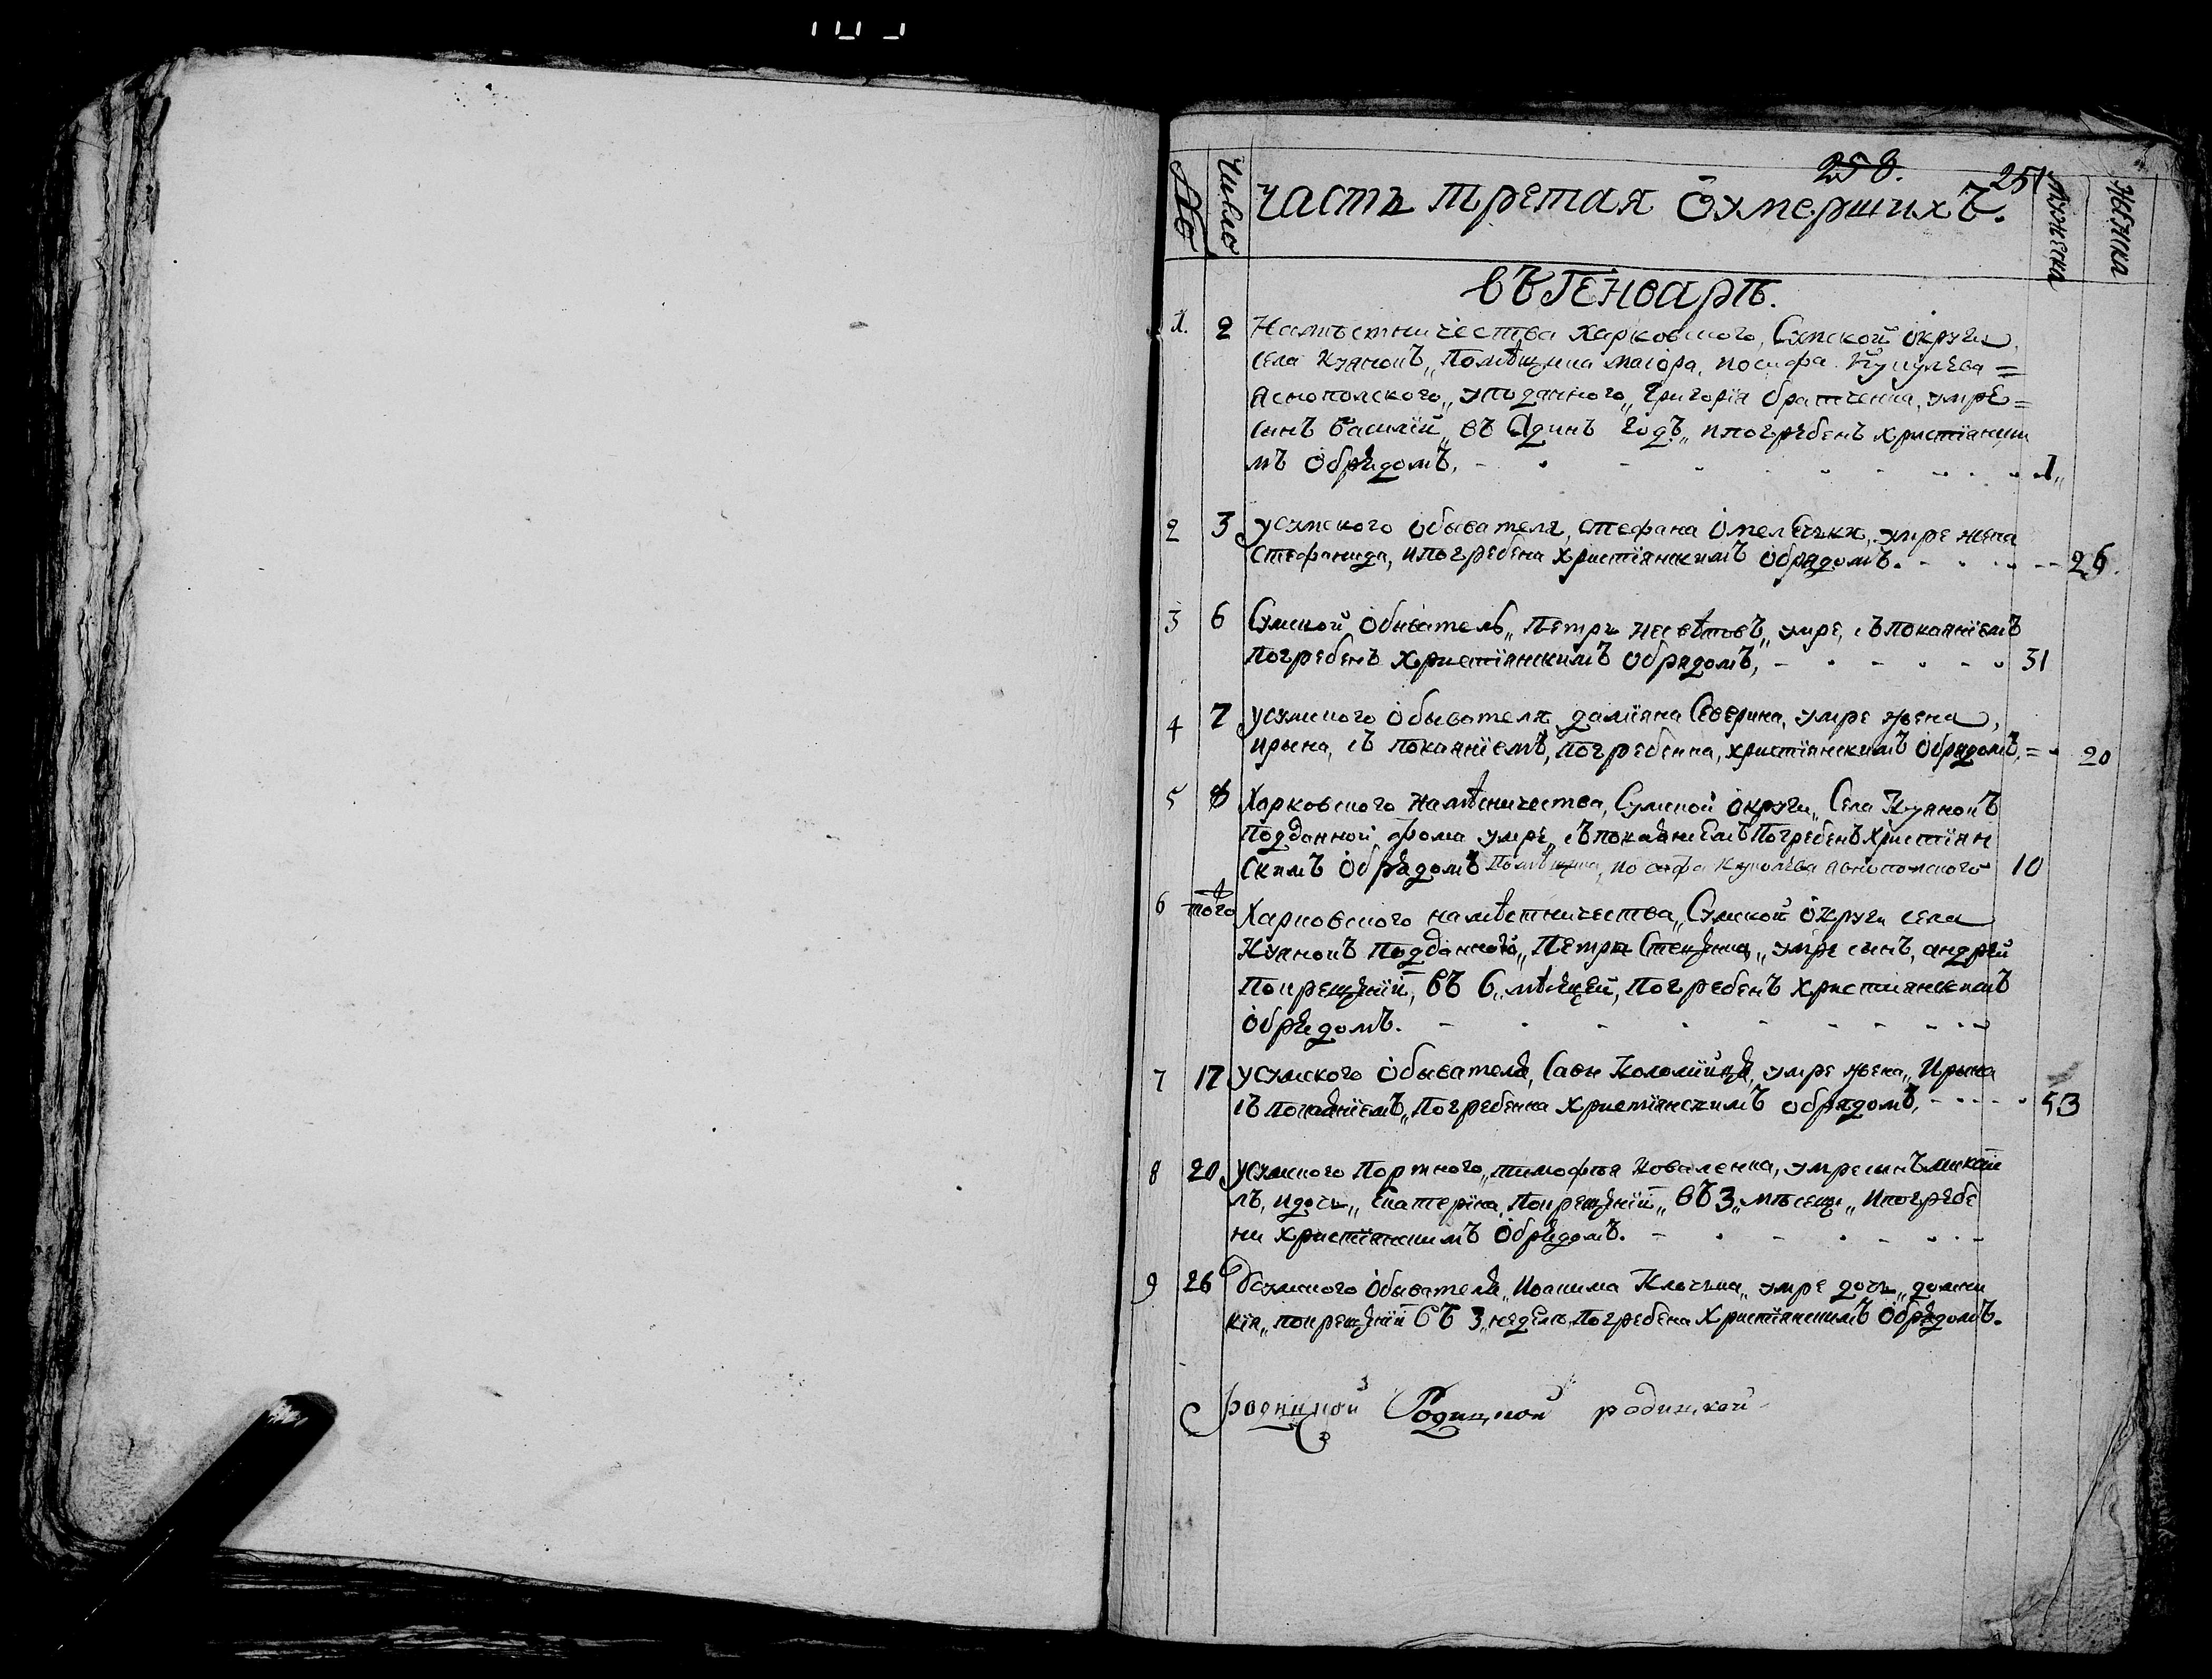 258. 251
№ Число часть третая Ѡумершихъ. мужеска женска
въ Генварѣ.
1. 2 Намѣстничества харковского, Сумской округи
села Куяновъ, Помѣщика маіора, иосифа Куцулева =
Яснополского, уподданного, Григорія братченка, умре =
сынъ Василій, въ Адинъ Годъ, ипогребенъ христіански
мъ Обрядомъ, - - - - - - 1,,
2 3 усумского обывателя, стефана Омелечки, умре жена
Стефанида, ипогребена христіянскимъ обрядомъ. - - - - 26.
3 6 Сумской обыватель, Петръ несвѣтовъ, умре, съпокаянїемъ
погребенъ христіянскимъ обрядомъ, - - - - - 31
4 7 усумского обывателя даміяна Северина, умре жена,
ирына, съ покаянїемъ, погребенна, христіянскимъ обрядомъ, = - 20
5 8 Харковского намѣсничества, Сумской округи, Села Куяновъ
Подданной фома умре, съпокаяниемъ Погребенъ христіян
скимъ обрядомъ Помѣщика, иосифа Куцулева яснополского 10
6 того Харковского намѣстничества, Сумской округи села
Куяновъ Подданного, Петра Стеценка, умре сынъ, андрей
Покрещеній, въ 6,, мѣсяцей, Погребенъ християнскимъ
обрядомъ. - - - - - - -
7 17 усумского обывателя, Савы Коломійця, умре жена, Ирына
съ покаянїемъ, погребенна христіянскимъ обрядомъ, - - - - 53
8 20 усумского Портного, тимофѣя Коваленка, умре сынъ михаи
лъ, идочь, Екатерїна, Покрещеній, въ 3,, мѣсеци, Ипогребе
ни христіянскимъ обрядомъ. - - - - - -
9 26 Усумского обывателя, Иоакима Клочька, умре дочь, домни
кія, покрещеній въ 3,, недели, Погребена Христіянскимъ обрядомъ.
Родицкой родицкой